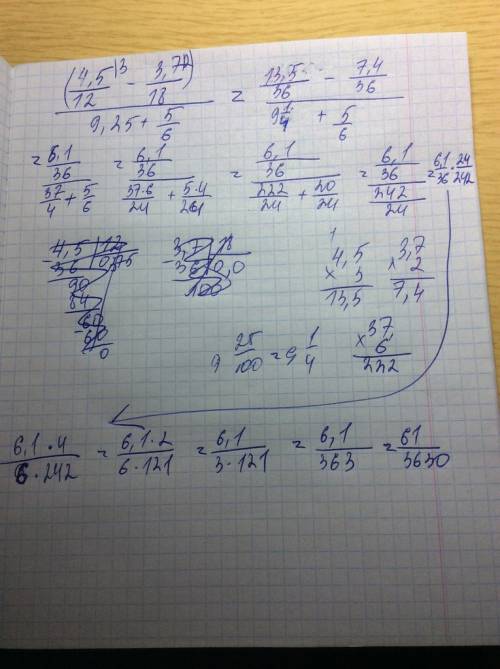 (4,5/12 |3 - 3,7/18 |2) / (9,25 + 5/6) = (13,5/36 - 7,4/36) / (9 1/4 + 5/6)
= (6,1/36) / (37/4 + 5/6) = (6,1/36) / (37·6/24 + 5·4/24) = (6,1/36) / (222/24 + 20/24) = (6,1/36) / (242/24) = 6,1/36 · 24/242
4,5 | 12
- 36 | 0,375
90
84
60
- 60
0
3,7 | 18
- 36 | 0,0
100
1
4,5
× 3
13,5
3,7
× 2
7,4
9 25/100 = 9 1/4
37
× 6
222
6,1·4 / 6·242 = 6,1·2 / 6·121 = 6,1 / 3·121 = 6,1/363 = 61/3630